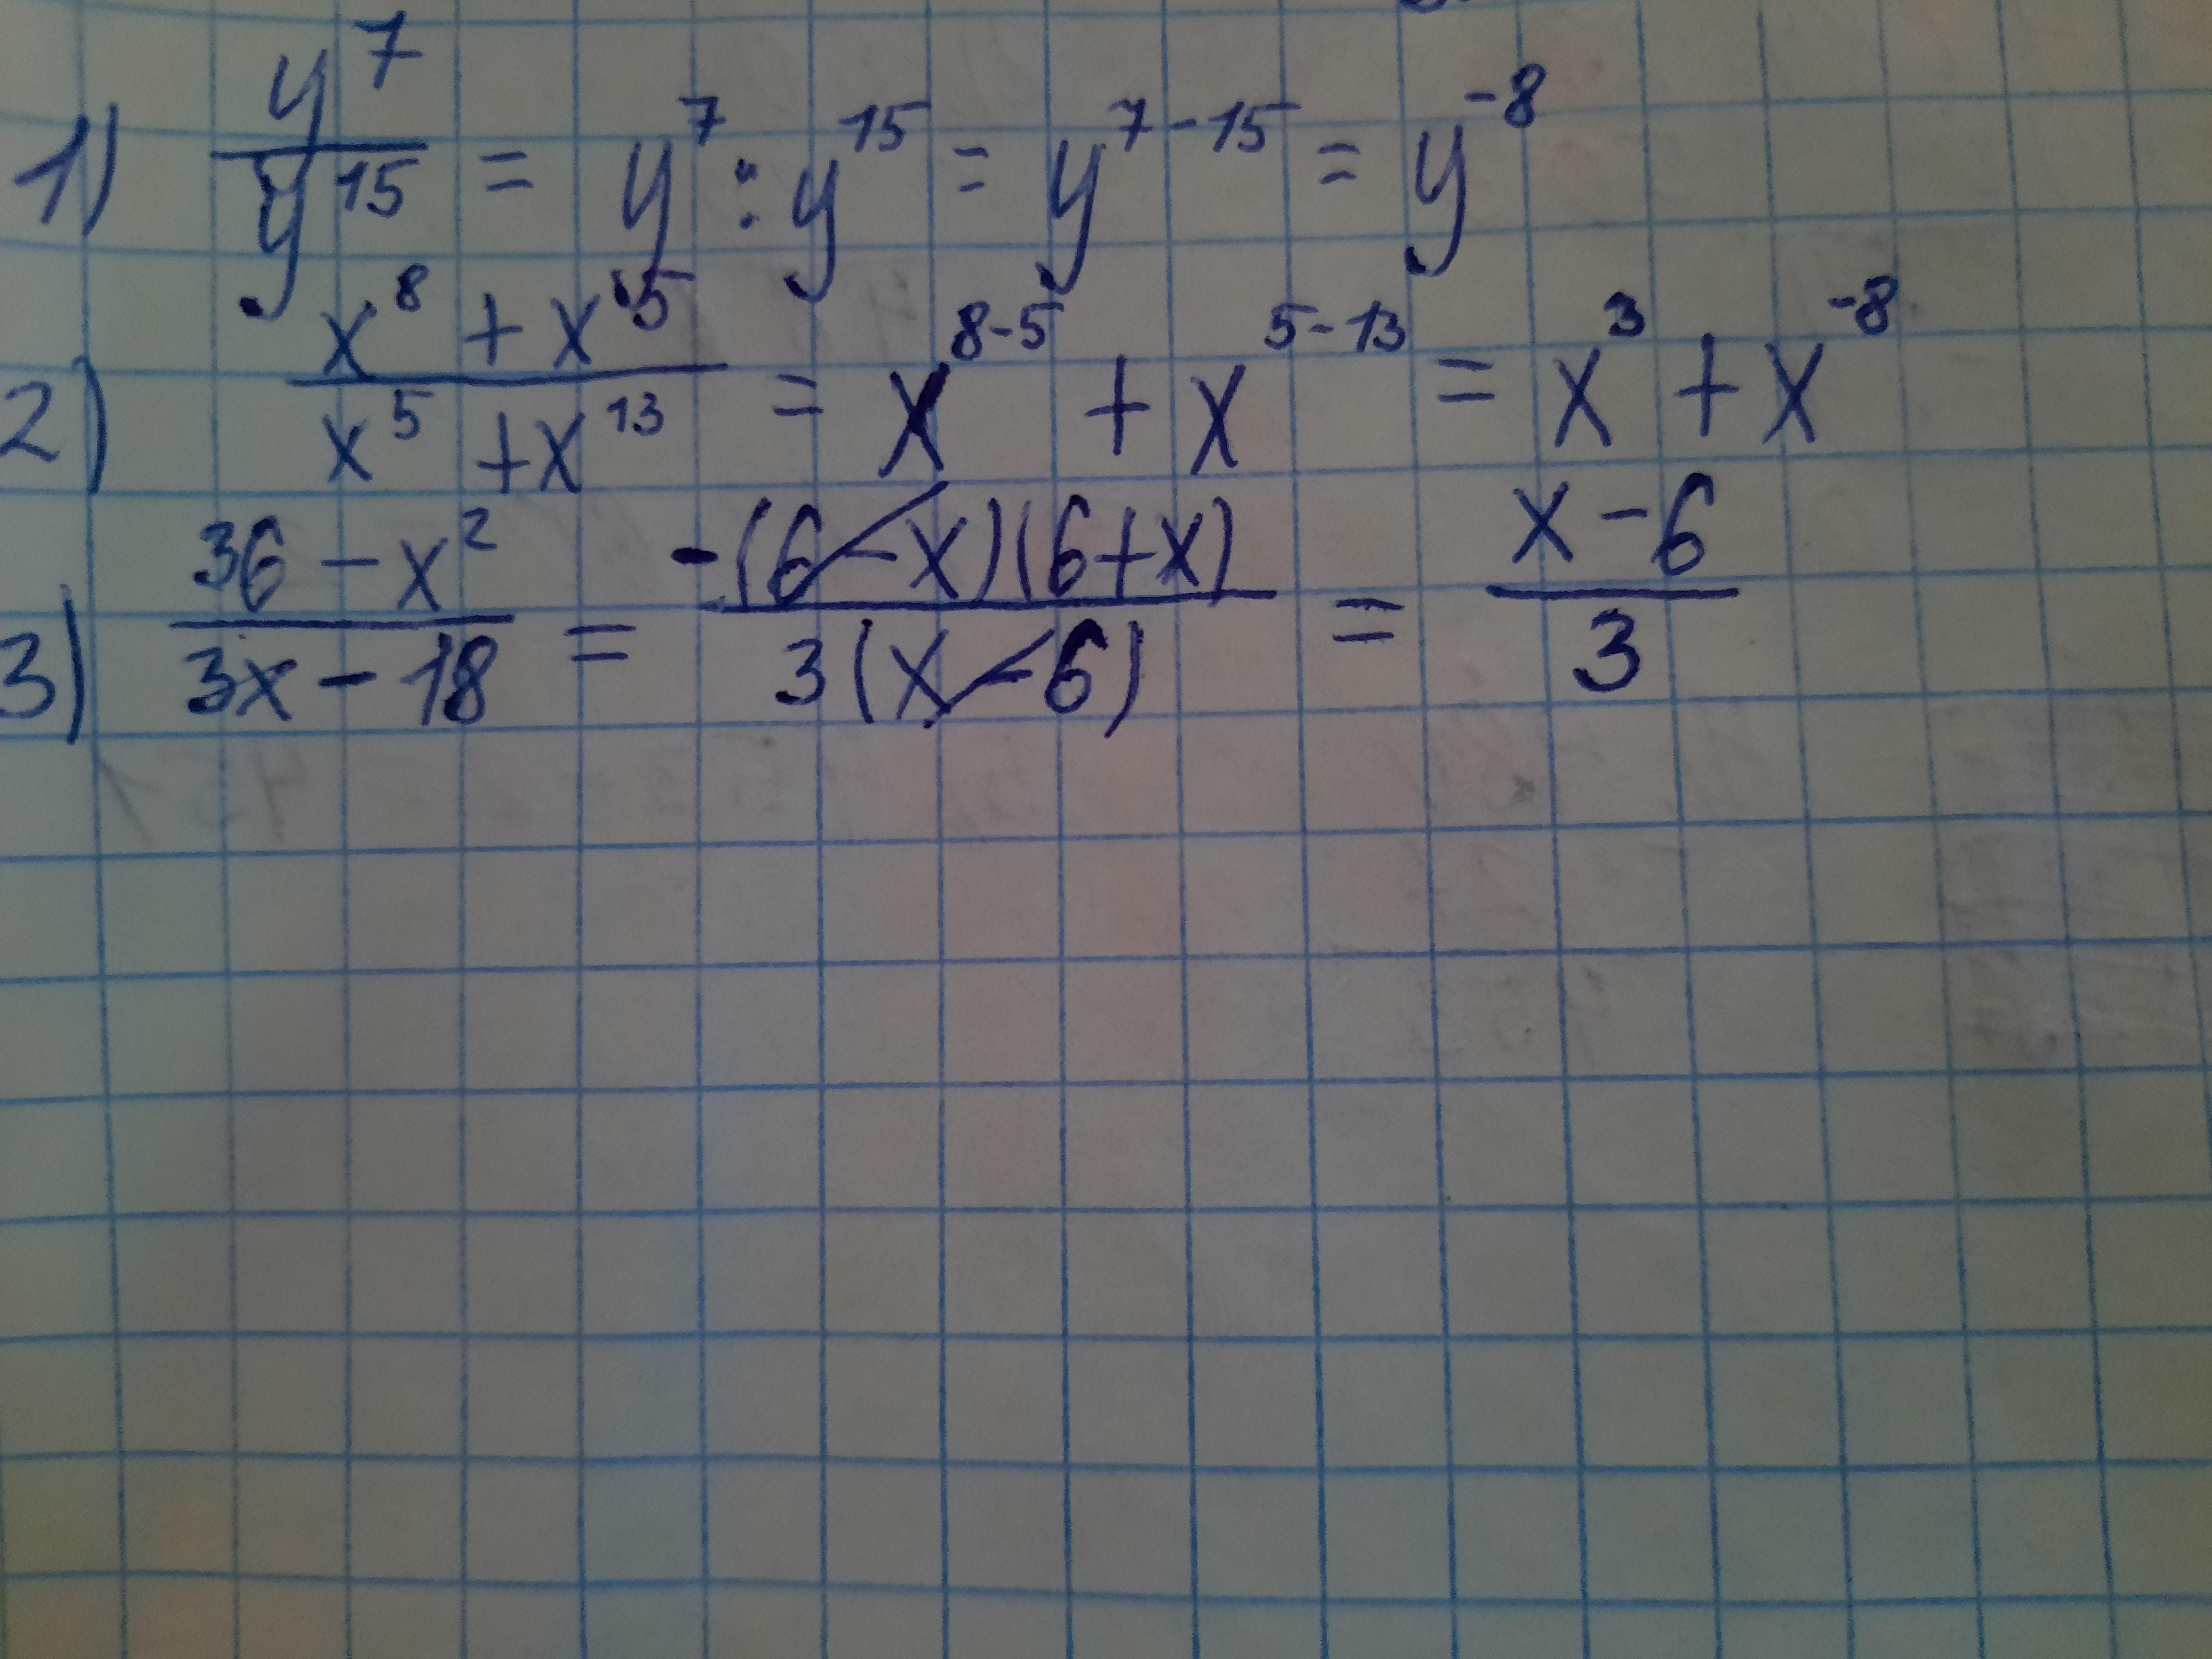 1) y^7/y^15 = y^7 : y^15 = y^(7-15) = y^-8
2) (x^8 + x^5)/(x^5 + x^13) = x^(8-5) + x^(5-13) = x^3 + x^-8
3) (36 - x^2)/(3x - 18) = (-(6 - x)(6 + x))/(3(x - 6)) = (x - 6)/3